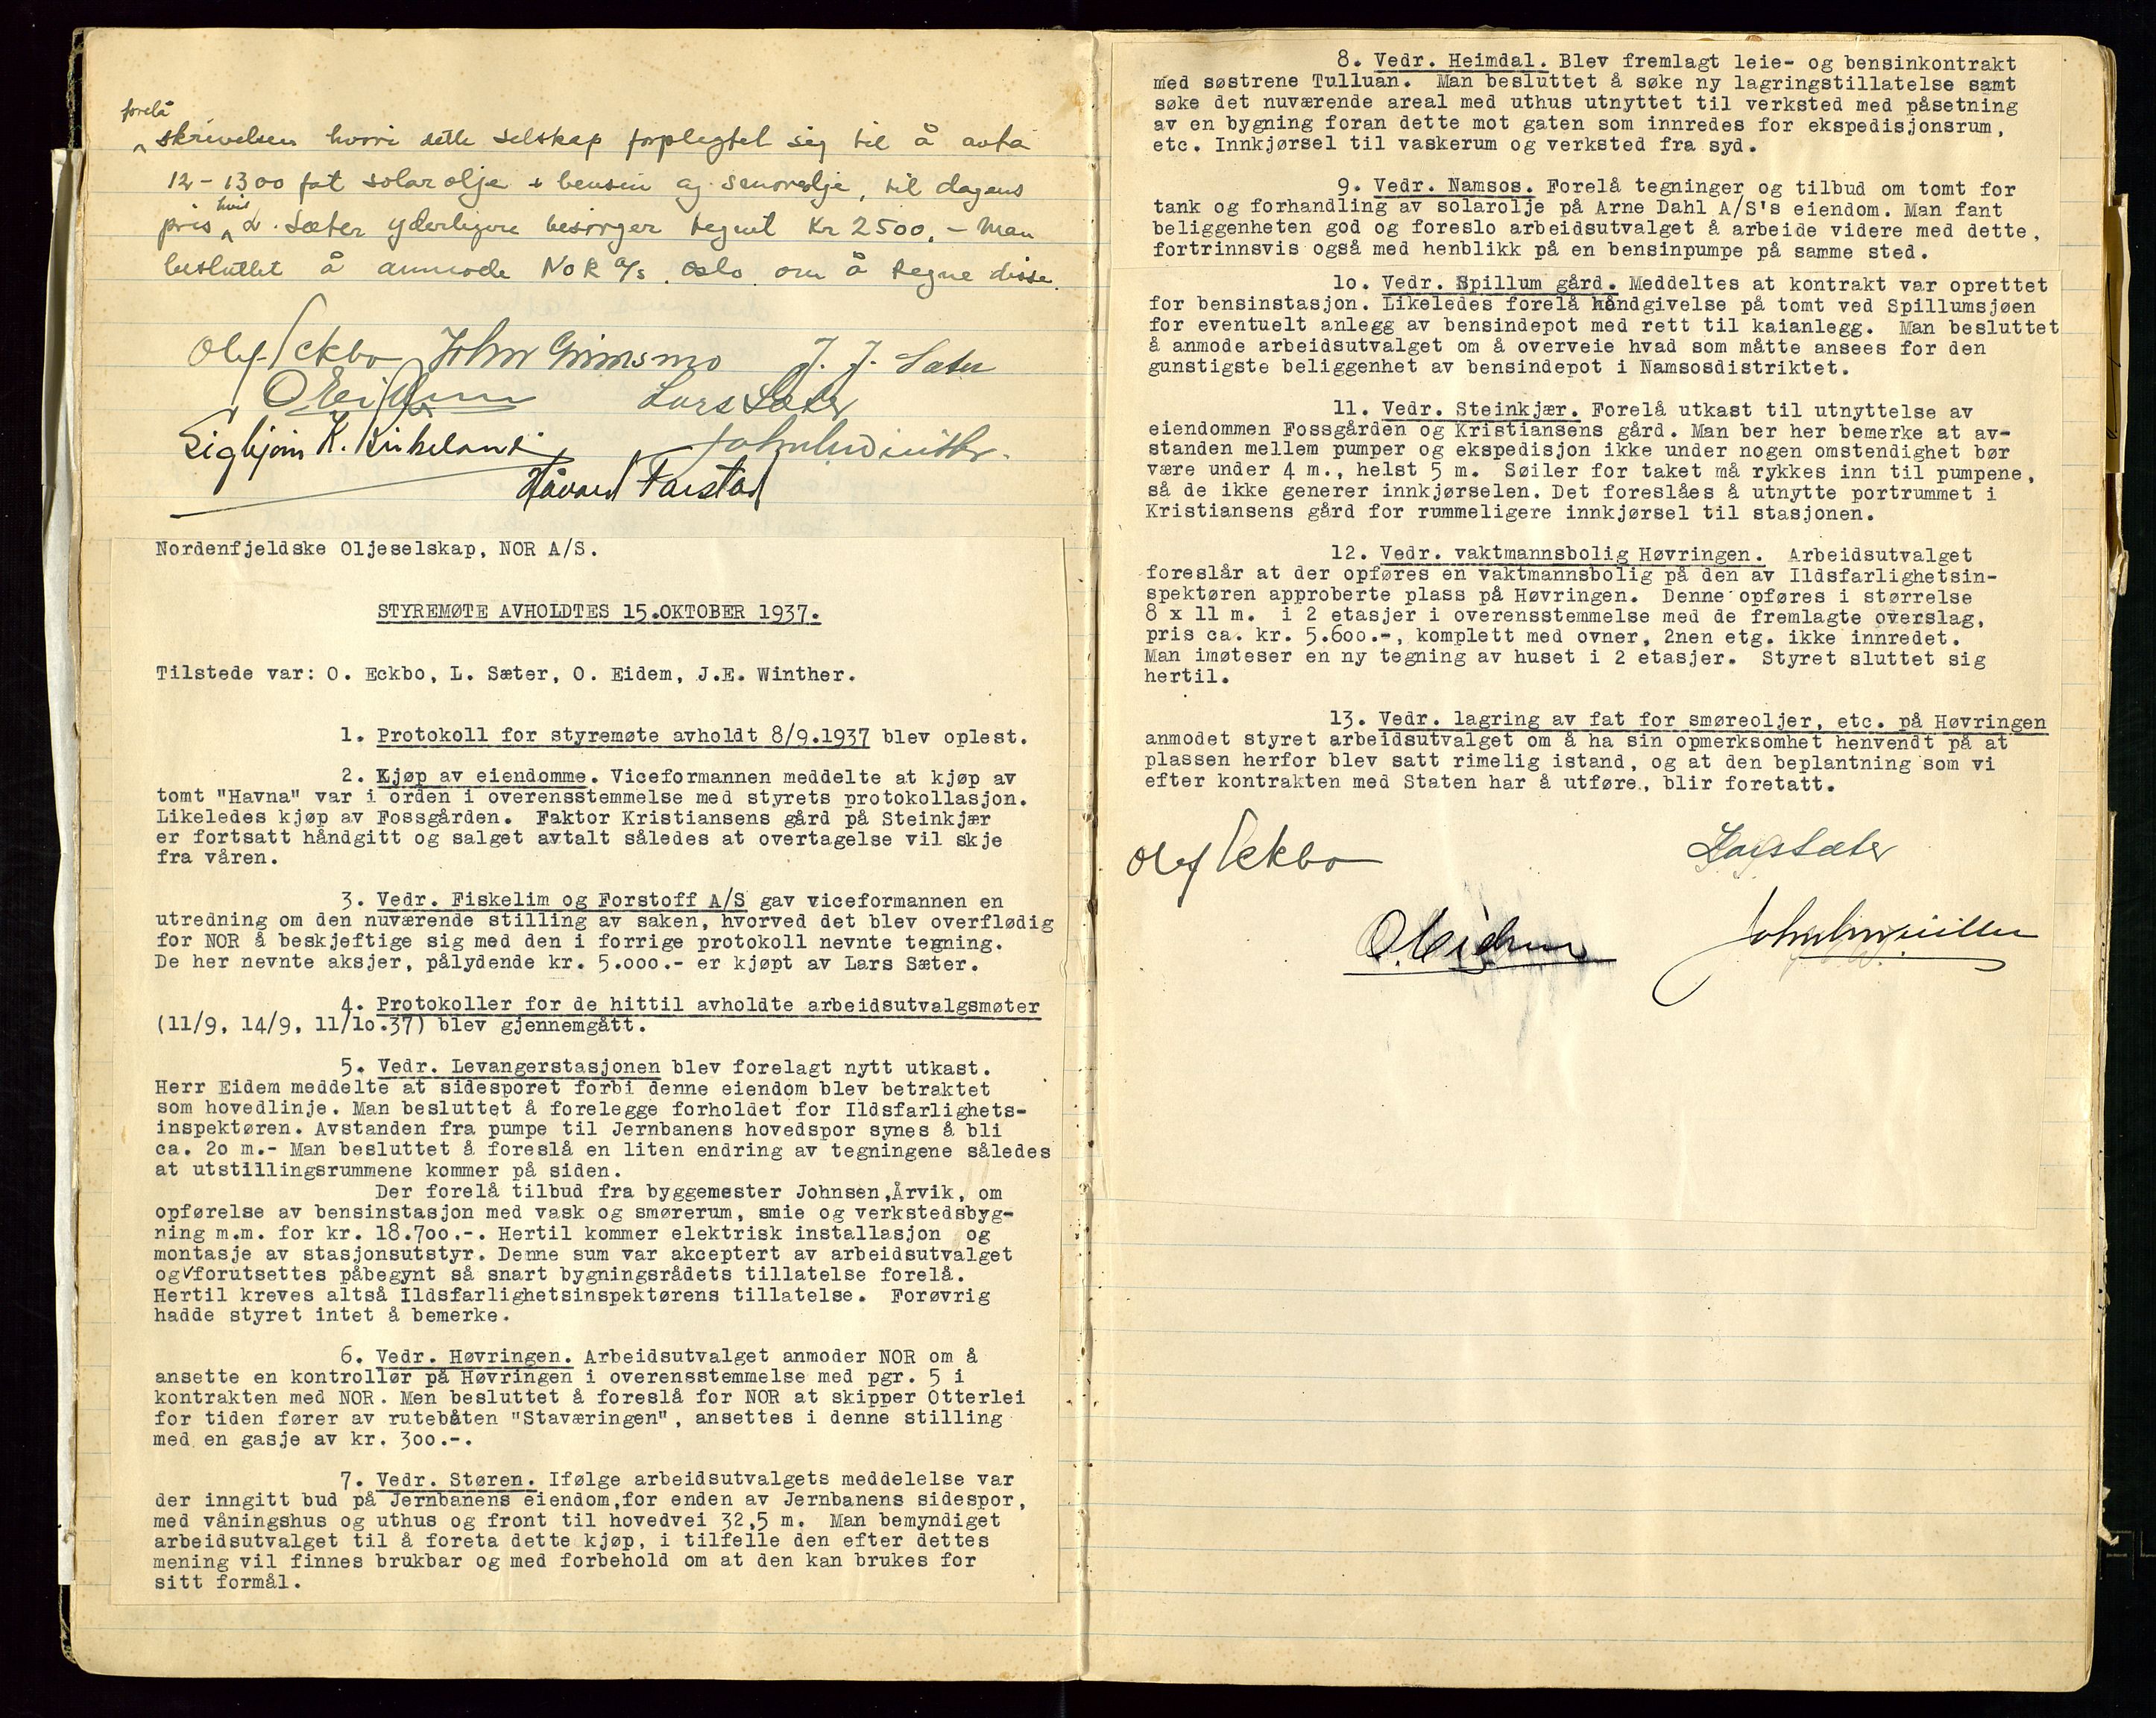 forelå
skrivelsen hvori dette selskap forplegtet sig til å avta
12-1300 fat solarolje + bensin og smøreolje, til dagens
hvis
pris L. Sæter yderligere besørger tegnet Kr 2500,- Man
besluttet å anmode NOR A/S. Oslo om å tegne disse.
Olaf Eckbo John Grimsmo J. J. Sæter
O Eidem Lars Sæter
Sigbjørn K. Birkeland John E Winther
Håvard Farstad
Nordenfjeldske Oljeselskap, NOR A/S.
STYREMØTE AVHOLDTES 15.OKTOBER 1937.
Tilstede var: O. Eckbo, L. Sæter, O. Eidem, J.E. Winther.
1. Protokoll for styremøte avholdt 8/9.1937 blev oplest.
2. Kjøp av eiendomme. Viceformannen meddelte at kjøp av
tomt "Havna" var i orden i overensstemmelse med styrets protokollasjon.
Likeledes kjøp av Fossgården. Faktor Kristiansens gård på Steinkjær
er fortsatt håndgitt og salget avtalt således at overtagelse vil skje
fra våren.
3. Vedr. Fiskelim og Forstoff A/S gav viceformannen en
utredning om den nuværende stilling av saken, hvorved det blev overflødig
for NOR å beskjeftige sig med den i forrige protokoll nevnte tegning.
De her nevnte aksjer, pålydende kr. 5.000.- er kjøpt av Lars Sæter.
4. Protokoller for de hittil avholdte arbeidsutvalgsmøter
(11/9, 14/9, 11/10.37) blev gjennemgått.
5. Vedr. Levangerstasjonen blev forelagt nytt utkast.
Herr Eidem meddelte at sidesporet forbi denne eiendom blev betraktet
som hovedlinje. Man besluttet å forelegge forholdet for Ildsfarlighets-
inspektøren. Avstanden fra pumpe til Jernbanens hovedspor synes å bli
ca. 20 m.- Man besluttet å foreslå en liten endring av tegningene således
at utstillingsrummene kommer på siden.
Der forelå tilbud fra byggemester Johnsen,Årvik, om
opførelse av bensinstasjon med vask og smørerum, smie og verkstedsbyg-
ning m.m. for kr. 18.700.-. Hertil kommer elektrisk installasjon og
montasje av stasjonsutstyr. Denne sum var akceptert av arbeidsutvalget
og forutsettes påbegynt så snart bygningsrådets tillatelse forelå.
Hertil kreves altså Ildsfarlighetsinspektørens tillatelse. Forøvrig
hadde styret intet å bemerke.
6. Vedr. Høvringen. Arbeidsutvalget anmoder NOR om å
ansette en kontrollør på Høvringen i overensstemmelse med pgr. 5 i
kontrakten med NOR. Men besluttet å foreslå for NOR at skipper Otterlei
for tiden fører av rutebåten "Staværingen", ansettes i denne stilling
med en gasje av kr. 300.-.
7. Vedr. Støren. Ifølge arbeidsutvalgets meddelelse var
der inngitt bud på Jernbanens eiendom,for enden av Jernbanens sidespor,
med våningshus og uthus og front til hovedvei 32,5 m. Man bemyndiget
arbeidsutvalget til å foreta dette kjøp, i tilfelle den efter dettes
mening vil finnes brukbar og med forbehold om at den kan brukes for
sitt formål.
8. Vedr. Heimdal. Blev fremlagt leie- og bensinkontrakt
med søstrene Tulluan. Man besluttet å søke ny lagringstillatelse samt
søke det nuværende areal med uthus utnyttet til verksted med påsetning
av en bygning foran dette mot gaten som innredes for ekspedisjonsrum,
etc. Innkjørsel til vaskerum og verksted fra syd.
9. Vedr. Namsos. Forelå tegninger og tilbud om tomt for
tank og forhandling av solarolje på Arne Dahl A/S's eiendom. Man fant
beliggenheten god og foreslo arbeidsutvalget å arbeide videre med dette,
fortrinnsvis også med henblikk på en bensinpumpe på samme sted.
10. Vedr. Spillum gård. Meddeltes at kontrakt var oprettet
for bensinstasjon. Likeledes forelå håndgivelse på tomt ved Spillumsjøen
for eventuelt anlegg av bensindepot med rett til kaianlegg. Man besluttet
å anmode arbeidsutvalget om å overveie hvad som måtte ansees for den
gunstigste beliggenhet av bensindepot i Namsosdistriktet.
11. Vedr. Steinkjær. Forelå utkast til utnyttelse av
eiendommen Fossgården og Kristiansens gård. Man ber her bemerke at av-
standen mellem pumper og ekspedisjon ikke under nogen omstendighet bør
være under 4 m., helst 5 m. Søiler for taket må rykkes inn til pumpene,
så de ikke generer innkjørselen. Det foreslåes å utnytte portrummet i
Kristiansens gård for rummeligere innkjørsel til stasjonen.
12. Vedr. vaktmannsbolig Høvringen. Arbeidsutvalget
foreslår at der opføres en vaktmannsbolig på den av Ildsfarlighetsin-
spektøren approberte plass på Høvringen. Denne opføres i størrelse
8 x 11 m. i 2 etasjer i overensstemmelse med de fremlagte overslag,
pris ca. kr. 5.600.-, komplett med ovner, 2nen etg. ikke innredet.
Man imøteser en ny tegning av huset i 2 etasjer. Styret sluttet sig
hertil.
13. Vedr. lagring av fat for smøreoljer, etc. på Høvringen
anmodet styret arbeidsutvalget om å ha sin opmerksomhet henvendt på at
plassen herfor blev satt rimelig istand, og at den beplantning som vi
efter kontrakten med Staten har å utføre, blir foretatt.
Olaf Eckbo Lars Sæter
O. Eidem John E Winther